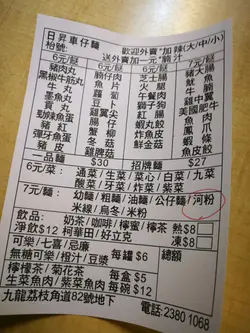 日昇車仔麵
枱號: 歡迎外賣"加辣(大/中/小)
送外賣加一元"腩汁
6元/餸 6元/餸 6元/餸 7元/餸
豬肉丸 腩仔 芝士腸 豬大腸
黑椒牛筋丸 魚肉 火腿 豬生腸
牛丸 腐 午餐肉 雞中翼
墨魚丸 蘿蔔 獅子狗
貢丸 雞翼尖 紅腸 美國肥牛
勁辣魚蛋 雞腎 蟹柳 鳳爪
豬紅 豆卜 炸魚皮
彈牙魚蛋 冬菇 炸魚片 魷魚
雲吞 雞髀菇 鮮魚皮餃
一品麵 $30 招牌麵 $27
6元/菜: 通菜/生菜/菜心/白菜/九菜
酸菜/芽菜/炸菜/紫菜
7元/麵: 幼麵/粗麵/油麵/公仔麵/河粉
米線/烏冬/米粉
飲品: 奶茶/咖啡/檸檬/檸茶 熱$8
淨飲$12 柯華田/好立克 凍$8
可樂/七喜/忌廉 總額
無糖可樂/橙汁/豆漿 每罐$6
檸檬茶/菊花茶 每盒$5
生菜魚肉/紫菜魚肉 每碗$12
九龍荔枝角道82號地下 電話:2380 1068